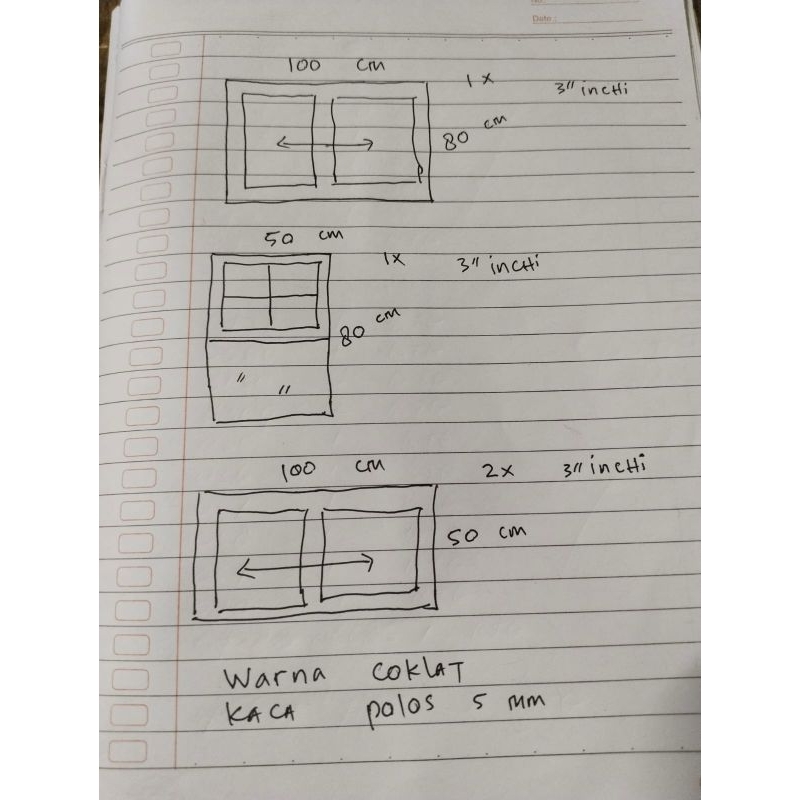 Date :
100 cm 1x 3" incHi
80 cm
50 cm 1x 3" incHi
80 cm
100 cm 2x 3" incHi
50 cm
Warna COKLAT
KACA polos 5 mm